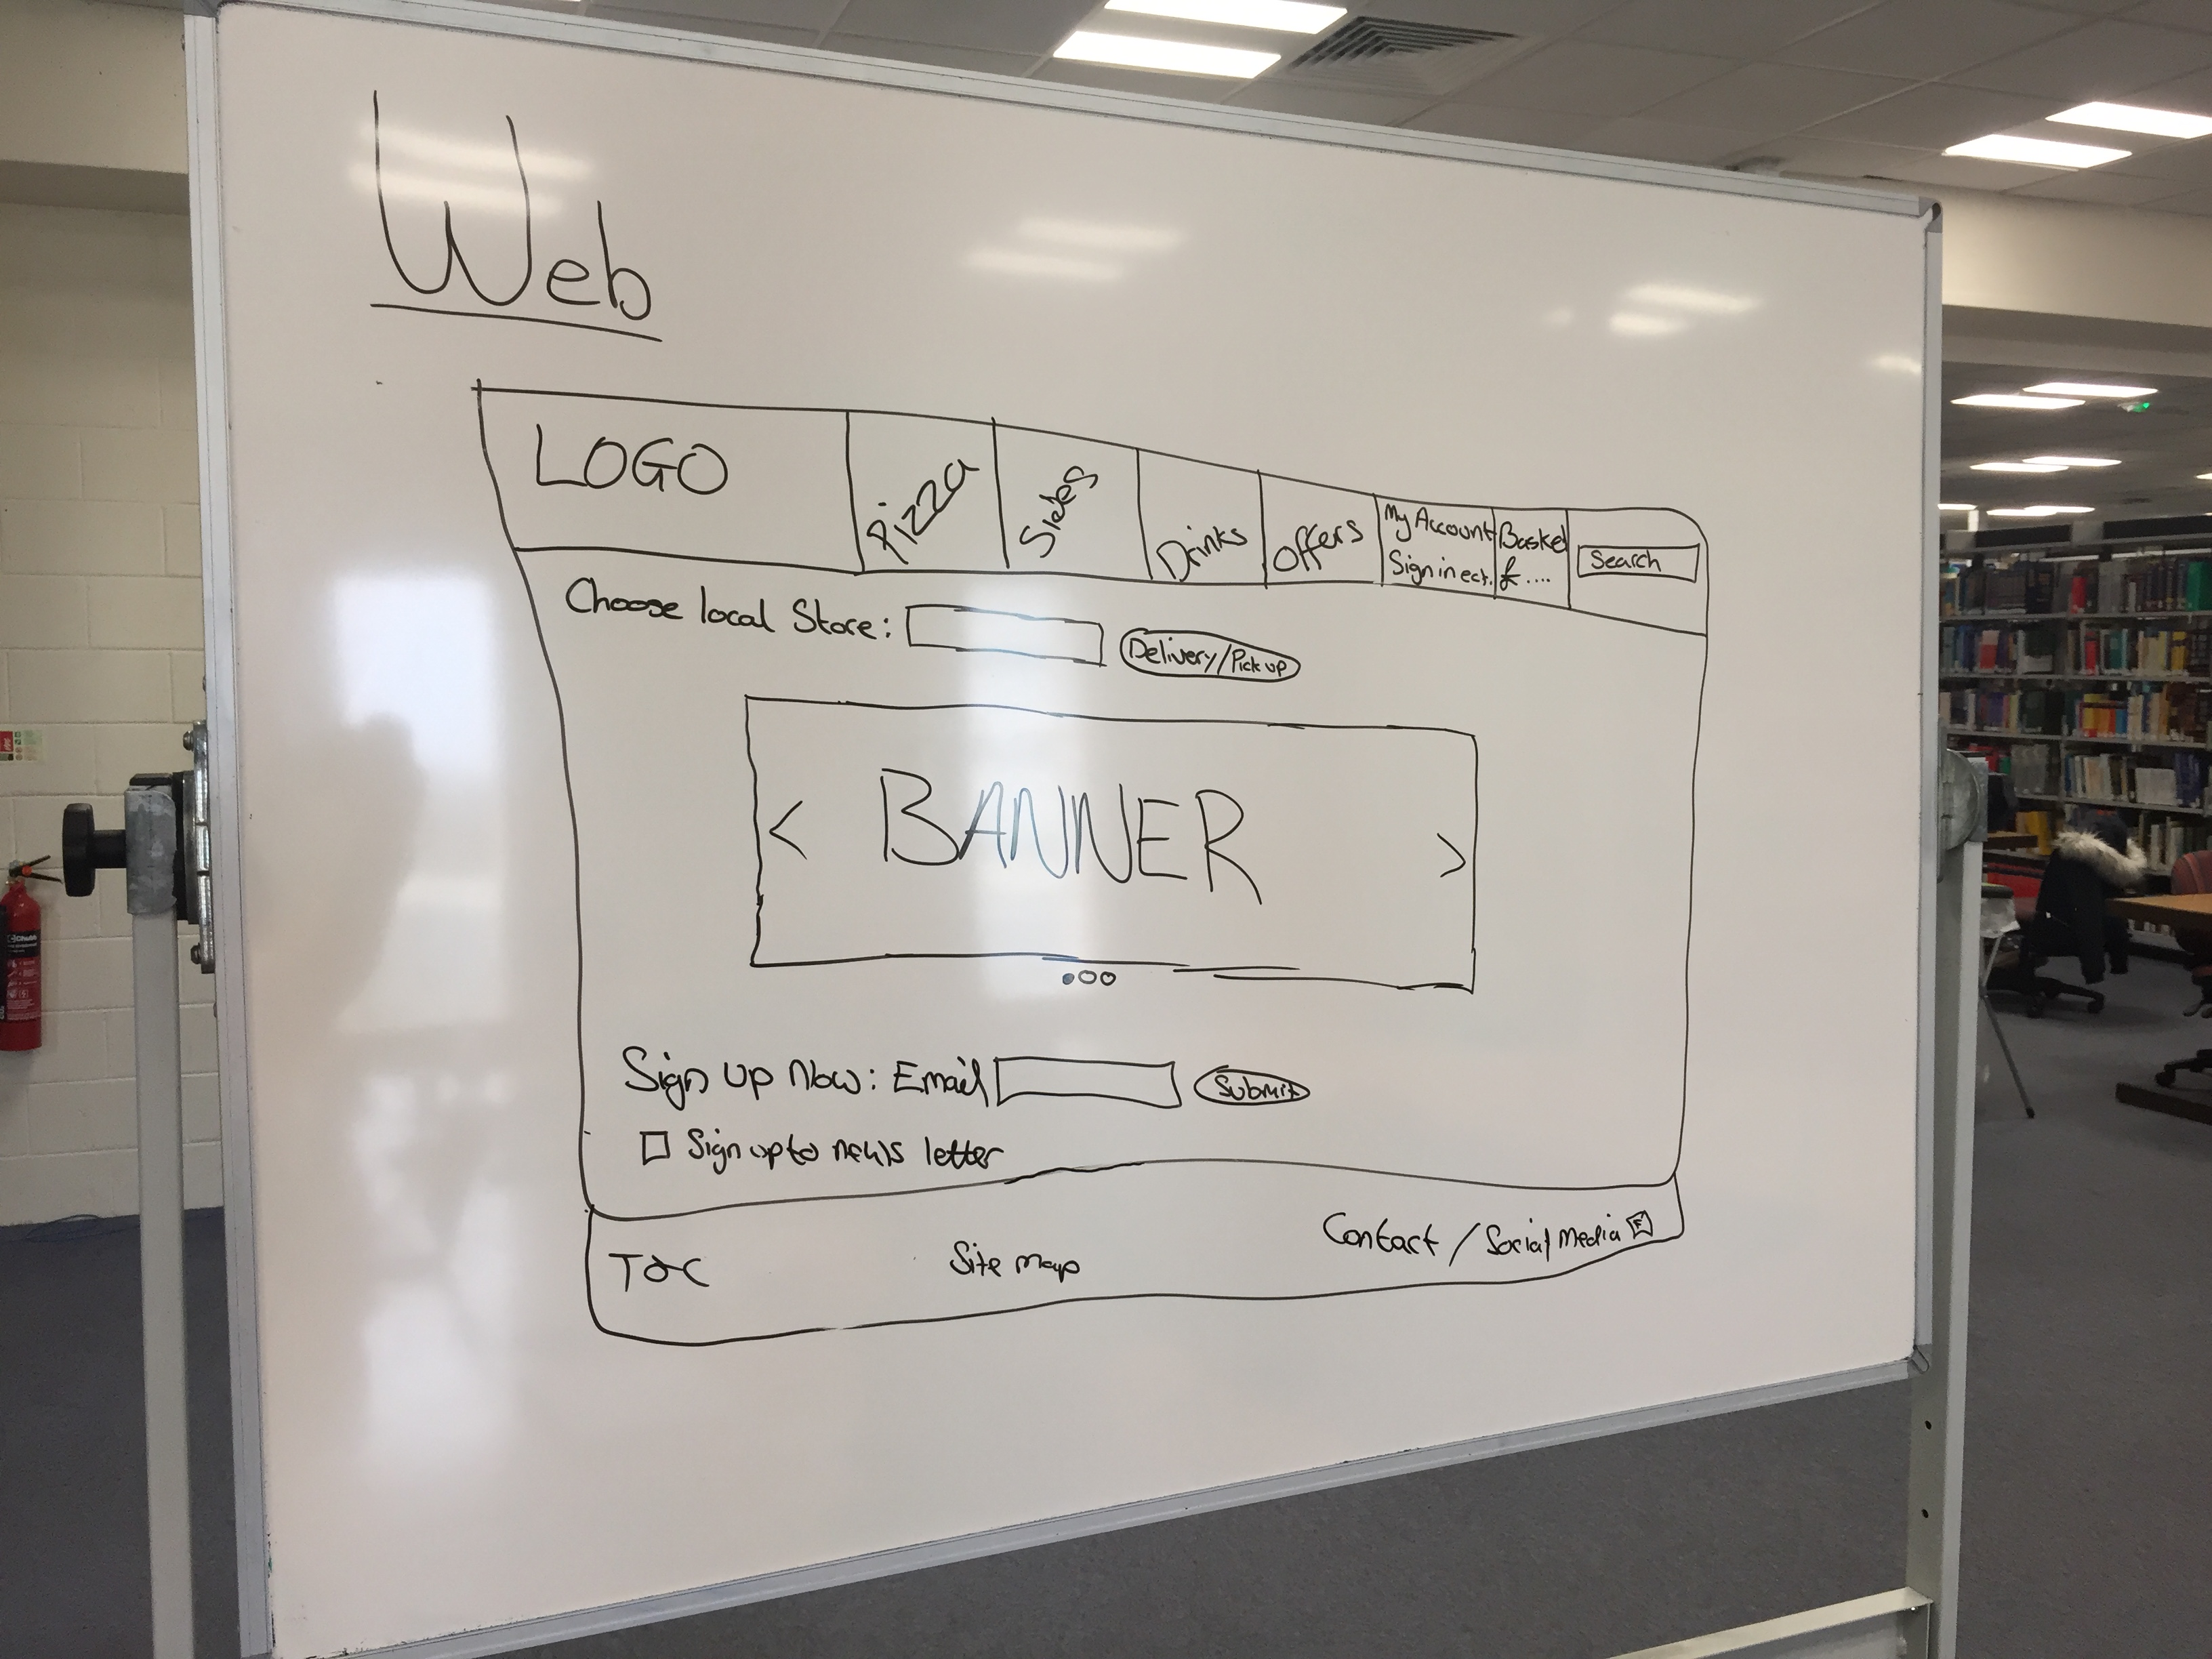 Web
LOGO
Pizza
Sides
Drinks
Offers
My Account
Sign in ect.
Basket
£....
Search
Choose local Store:
Delivery/Pick up
< BANNER >
Sign up Now: Email
Submit
Sign up to news letter
T&C
Site map
Contact / Social Media F